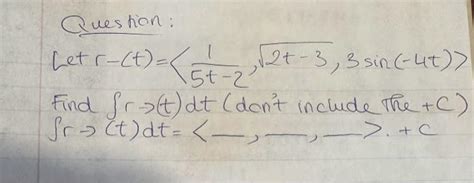 Question:
Let r-(t)=<1/(5t-2), √(2t-3), 3 sin(-4t)>
Find ∫r->(t)dt (don't include the +C)
∫r->(t)dt= <__, __, __>. +C